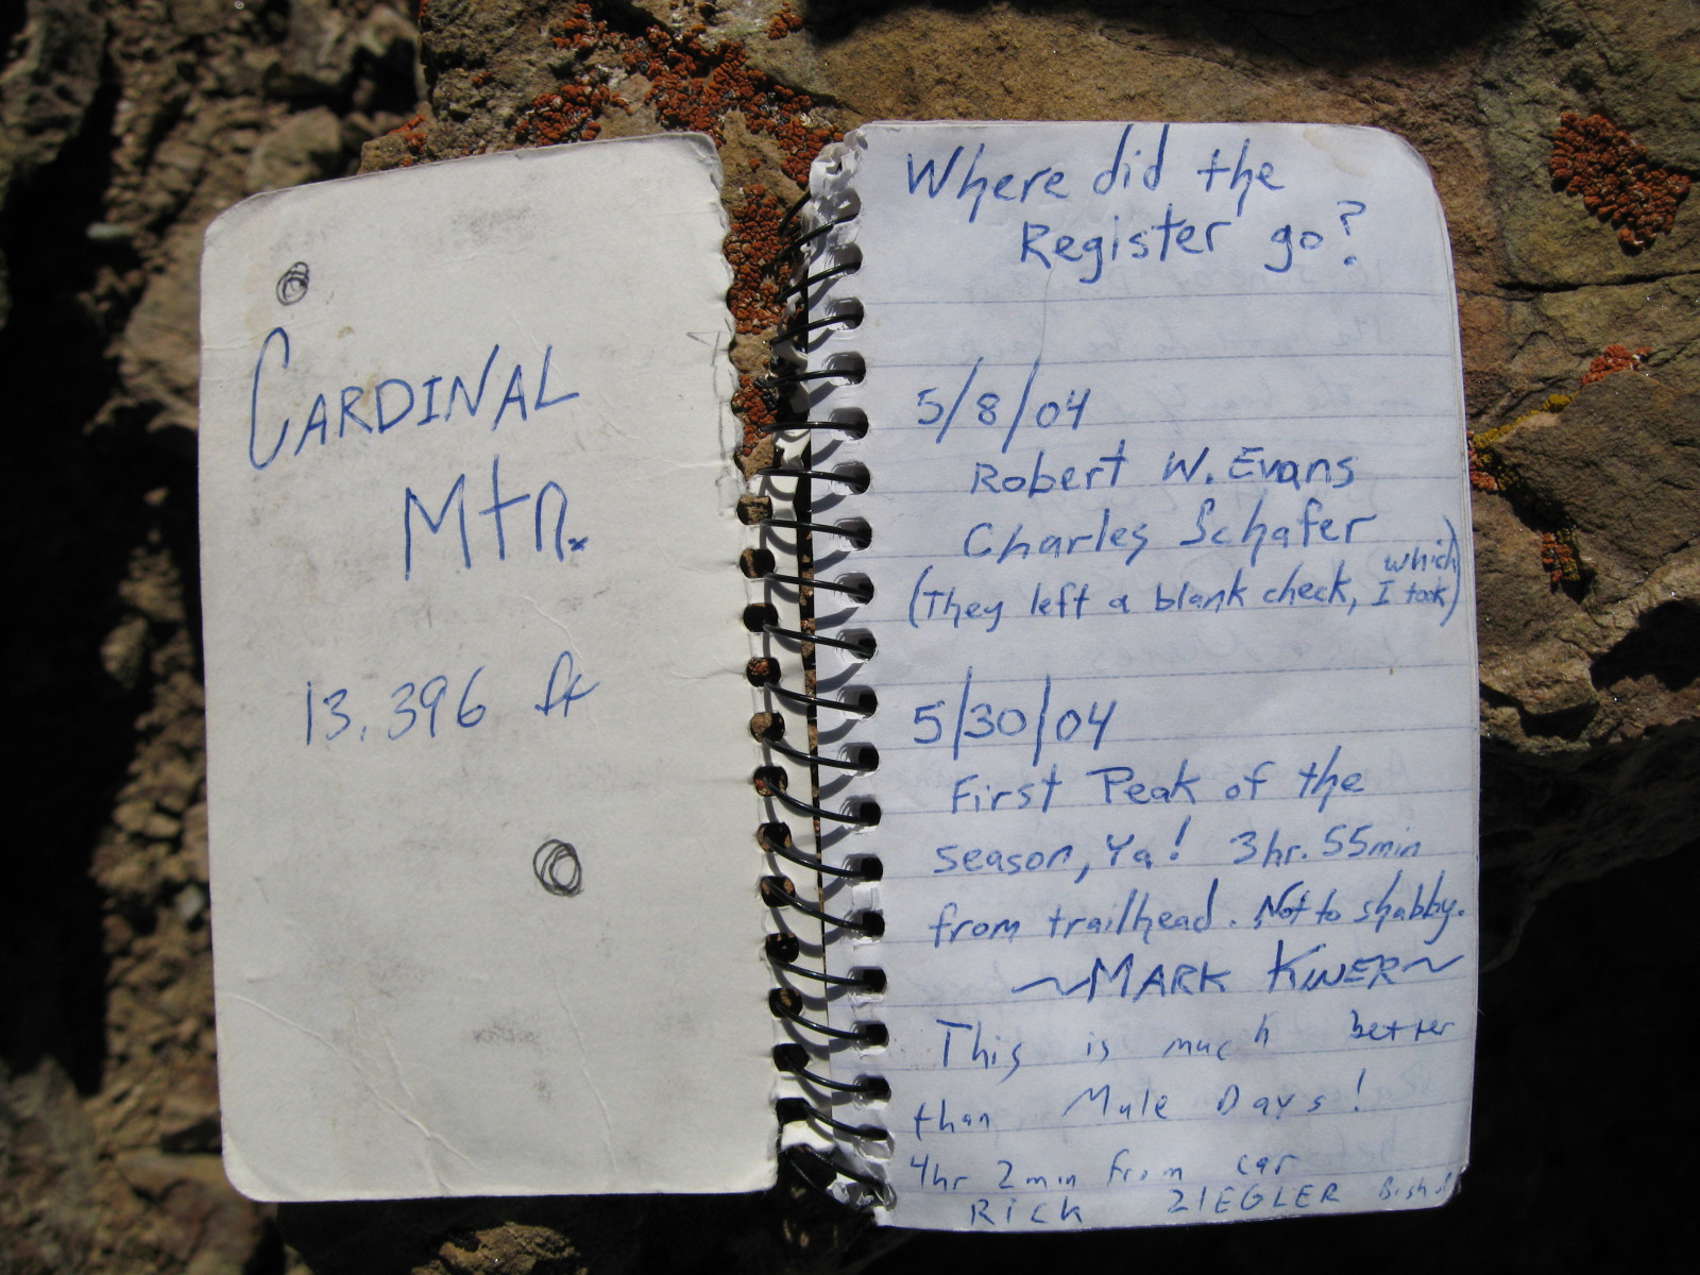 CARDINAL
Mtn.
13,396 ft
Where did the
Register go?
5/8/04
Robert W. Evans
Charles Schafer
(They left a blank check, which I took)
5/30/04
First Peak of the
season, Ya! 3hr. 55min
from trailhead. Not to shabby.
~MARK KINER~
This is much better
than Mule Days!
4hr 2min from car
RICK ZIEGLER